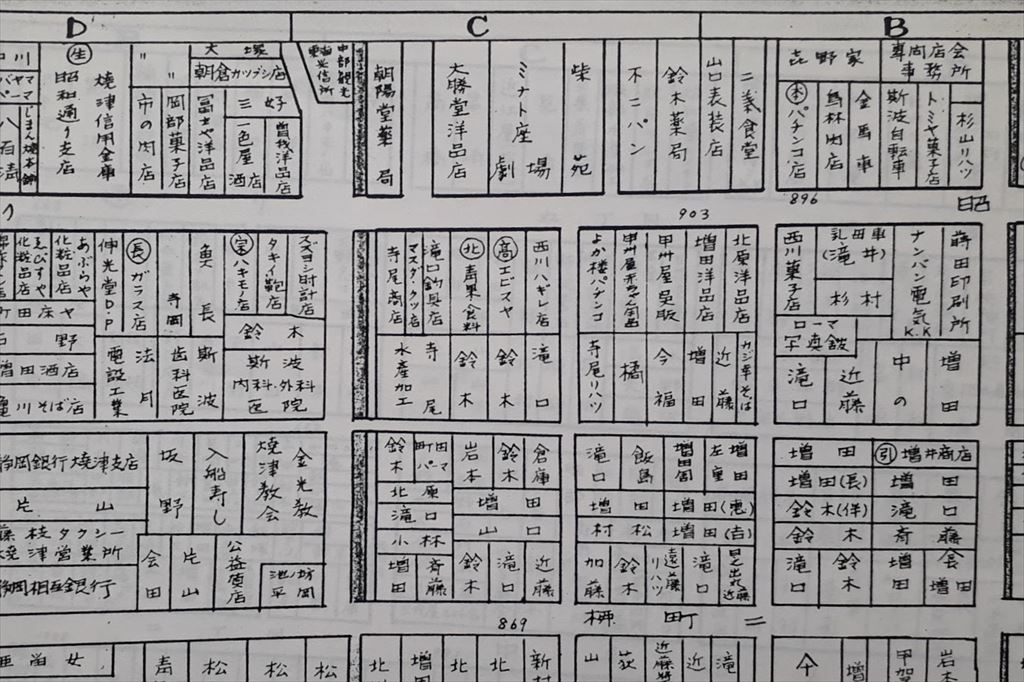 D
C
B
生
昭和通り支店
焼津信用金庫
〃
〃
市の肉店
岡部菓子店
大塚
朝倉カツブシ店
冨士や洋品店
三好
一色屋
酒店
曽我洋品店
中部観光
朝陽堂薬局
大勝堂洋品店
ミナト座
劇場
柴苑
不二パン
鈴木薬局
山口表装店
二葉食堂
㐂野家
専門店会
事務所
本
パチンコ店
鳥林肉店
金馬車
斯波自転車
トミヤ菓子店
杉山リハツ
903
896
昭
えびすや
化粧品店
あぶらや
化粧品店
伸光堂D.P
長
ガラス店
寺岡
魚長
宗
ハキモノ店
タキイ鞄店
スズヨシ時計店
鈴木
町田床ヤ
野
増田酒店
電設工業
法月
歯科医院
斯波
斯波
内科・外科
医院
寺尾商店
マスダ・クツ店
滝口釣具店
北
青果食料
高
エビスヤ
西川ハギレ店
水産加工
寺尾
鈴木
鈴木
滝口
よか楼パチンコ
甲州屋呉服
増田洋品店
北原洋品店
寺尾リハツ
橘
今福
増田
近藤
カジ幸そば
西川菓子店
乳母車
(滝井)
杉村
ナンバン電気K.K
蒔田印刷所
ローマ
写真館
滝口
近藤
中の
増田
静岡銀行焼津支店
片山
藤枝タクシー
焼津営業所
静岡相互銀行
坂野
入船寿し
焼津教会
金光教
会田
片山
公益質店
池平
坊岡
鈴木
町田
パーマ
岩本
鈴木
倉庫
北原
滝口
小林
増田
山口
増田
斉藤
鈴木
滝口
近藤
滝口
飯島
増田周
増田
左重
増田
増田(恵)
村松
増田(吉)
加藤
鈴木
遠藤
リハツ
滝口
日之出丸
近藤
増田
引
増井商店
増田(長)
増田
鈴木(佯)
滝口
鈴木
斉藤
滝口
鈴木
増田
会田
増
869
栁町二
亜留女
青
松
松
松
北
増
北
北
新
山
荻
近藤
近
滝
増
甲賀
岩本